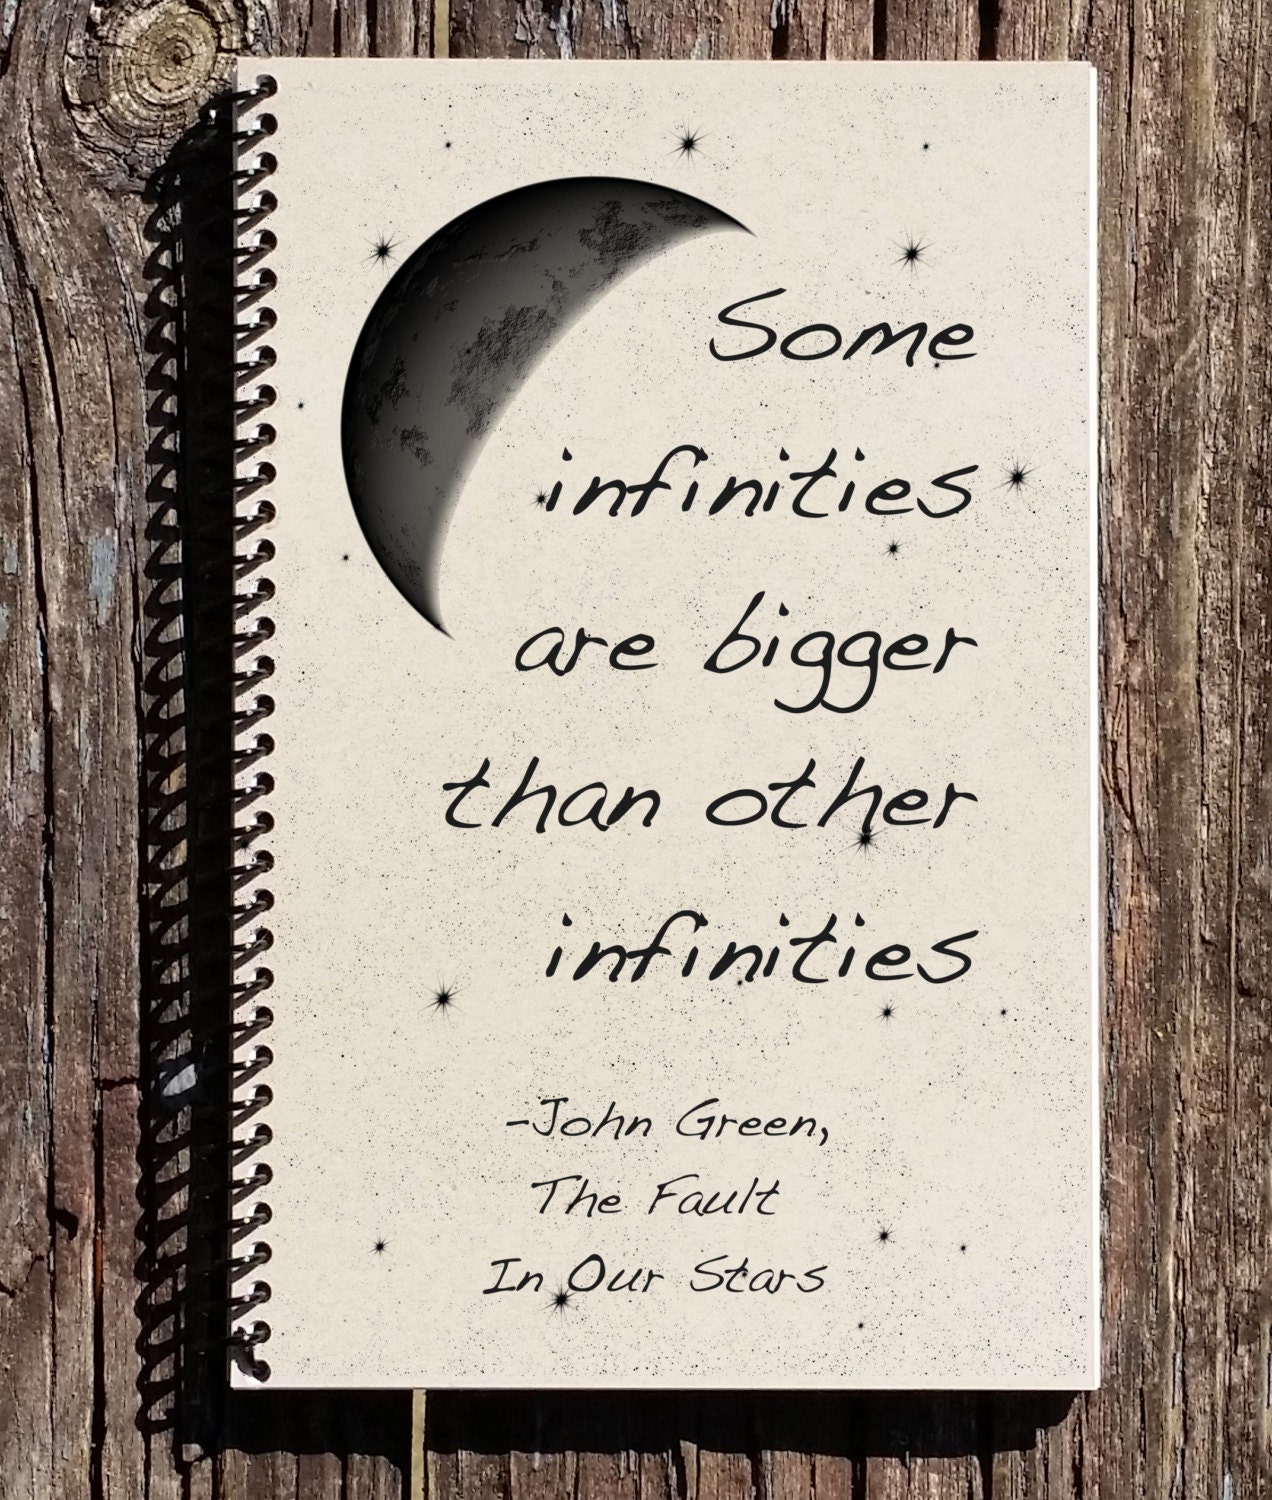 Some
infinities
are bigger
than other
infinities
-John Green,
The Fault
In Our Stars